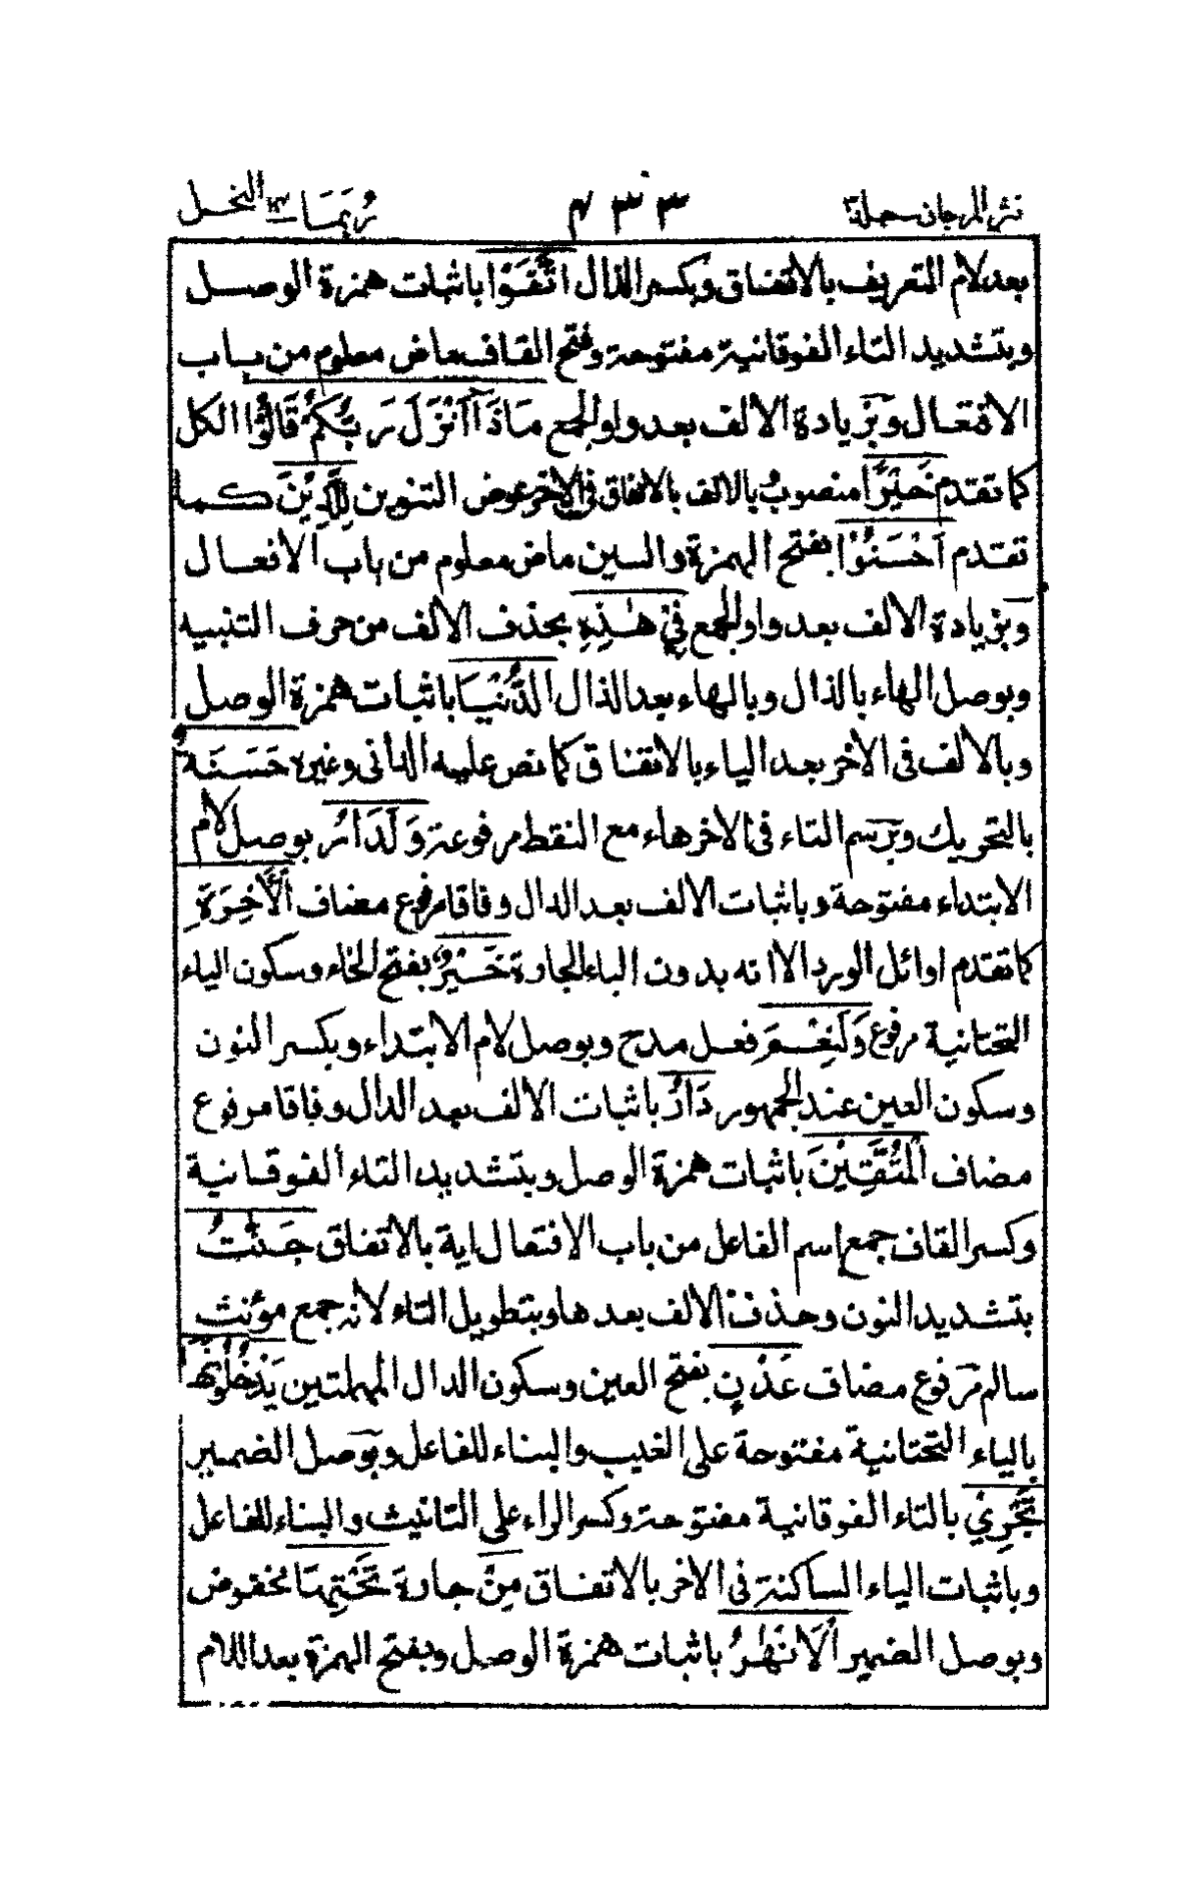 نثر المرجان جلد ٣ ٣٣٤ ربما ١٤ النحل
بعد لام التعريف بالاتفاق وبكسر الذال اتَّقَوْا باثبات همزة الوصل
وبتشديد التاء الفوقانية مفتوحة وفتح القاف ماض معلوم من باب
الافتعال وبزيادة الالف بعد واو الجمع مَاذَا اَنْزَلَ رَبُّكُمْ قَالُوْا الكل
كما تقدم خَيْرًا منصوب بالالف بالاتفاق فى الاخر عوض التنوين لِلَّذِيْنَ كما
تقدم اَحْسَنُوْا بفتح الهمزة والسين ماض معلوم من باب الافعال
وبزيادة الالف بعد واو الجمع فِيْ هٰذِهِ بحذف الالف من حرف التنبيه
وبوصل الهاء بالذال وبالهاء بعد الذال الدُّنْيَا باثبات همزة الوصل
وبالالف فى الاخر بعد الياء بالاتفاق كما نص عليه الدانى وغيره حَسَنَةٌ
بالتحريك وبرسم التاء فى الاخر هاء مع النقط مرفوعة وَلَدَارُ بوصل لام
الابتداء مفتوحة وباثبات الالف بعد الدال وفاقا مرفوع مضاف الْاٰخِرَةِ
كما تقدم اوائل الورد الا انه بدون الباء الجارة خَيْرٌ بفتح الخاء وسكون الياء
التحتانية مرفوع وَلَنِعْمَ فعل مدح وبوصل لام الابتداء وبكسر النون
وسكون العين عند الجمهور دَارُ باثبات الالف بعد الدال وفاقا مرفوع
مضاف الْمُتَّقِيْنَ باثبات همزة الوصل وبتشديد التاء الفوقانية
وكسر القاف جمع اسم الفاعل من باب الافتعال اية بالاتفاق جَنّٰتُ
بتشديد النون وحذف الالف بعدها وبتطويل التاء لانه جمع مؤنث
سالم مرفوع مضاف عَدْنٍ بفتح العين وسكون الدال المهملتين يَدْخُلُوْنَهَا
بالياء التحتانية مفتوحة على الغيب والبناء للفاعل وبوصل الضمير
تَجْرِيْ بالتاء الفوقانية مفتوحة وكسر الراء على التانيث والبناء للفاعل
وباثبات الياء الساكنة فى الاخر بالاتفاق مِنْ جارة تَحْتِهَا مخفوض
وبوصل الضمير الْاَنْهٰرُ باثبات همزة الوصل وبفتح الهمزة بعد اللام